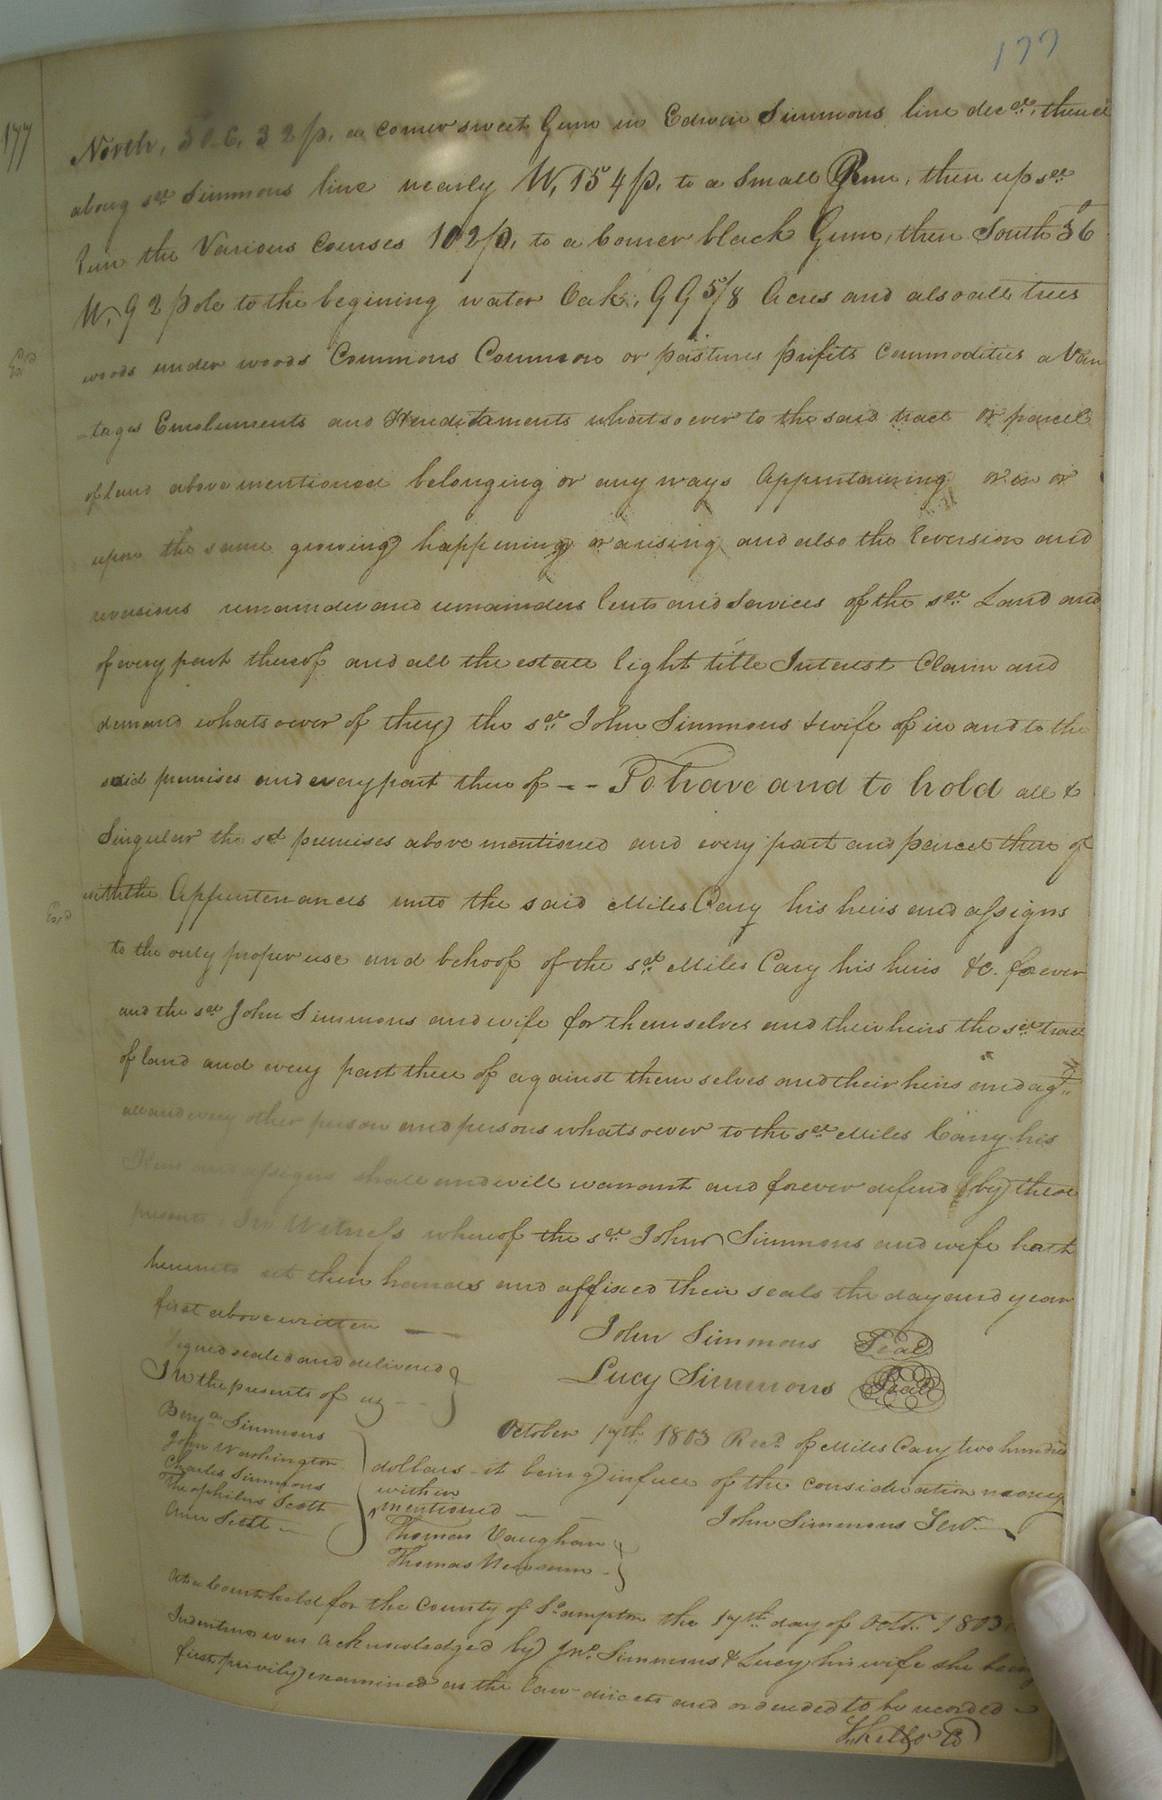 177
177
North, 50 E, 32 p, a corner sweet Gum in Edwin Simmons line decd, thence
along sd Simmons line nearly W, 154 p, to a Small Run, then up sd
Run the Various Courses 102 p, to a Corner black Gum, then South 56
W, 92 pole to the begining water Oak, 99 5/8 Acres and also all trees
woods under woods Commons Common or pastures profits Commodities a Van
-tages Emoluments and Hereditaments whatsoever to the said tract or parcel
of land above mentioned belonging or any ways Appurtaining or in or
upon the same growing happening or arising and also the Reversion and
reversions remainder and remainders Rents and Services of the sd Land and
of every part thereof and all the estate Right title Interest Claim and
demand whatsoever of they the sd John Simmons & wife of in and to the
said premises and every part there of -- To have and to hold all &
Singular the sd premises above mentioned and every part and parcel there of
with the Appurtenances unto the said Miles Cary his heirs and assigns
to the only proper use and behoof of the sd Miles Cary his heirs &c. forever
and the sd John Simmons and wife for themselves and their heirs the sd tract
of land and every part there of against them selves and their heirs and agt.
all and every other person and persons whatsoever to the sd Miles Carry his
Heirs and assigns shall and will warrant and forever defend (by) these
presents, In Witness whereof the sd John Simmons and wife hath
hereunto set their hands and affixed their seals the day and year
first above written —
John Simmons Seal
Signed sealed and delivered
Lucy Simmons Seal
In the presents of us --
Benja Simmons
John Washington
Charles Simmons
Theophilus Scott
October 17th 1803 Recd of Miles Cary two hundred
dollars it being in full of the consideration money
within
mentioned —
John Simmons Senr.
Thomas Vaughan
Thomas Newsum
At a Court held for the County of So.ampton the 17th day of Octr. 1803
Indenture was acknowledged by Jno. Simmons & Lucy his wife she being
first privily examined as the law directs and ordended to be recorded